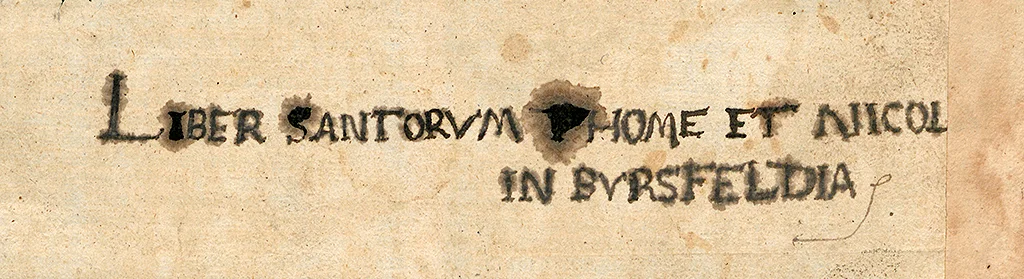 LIBER SANTORVM THOME ET NICOL
IN BVRSFELDIA